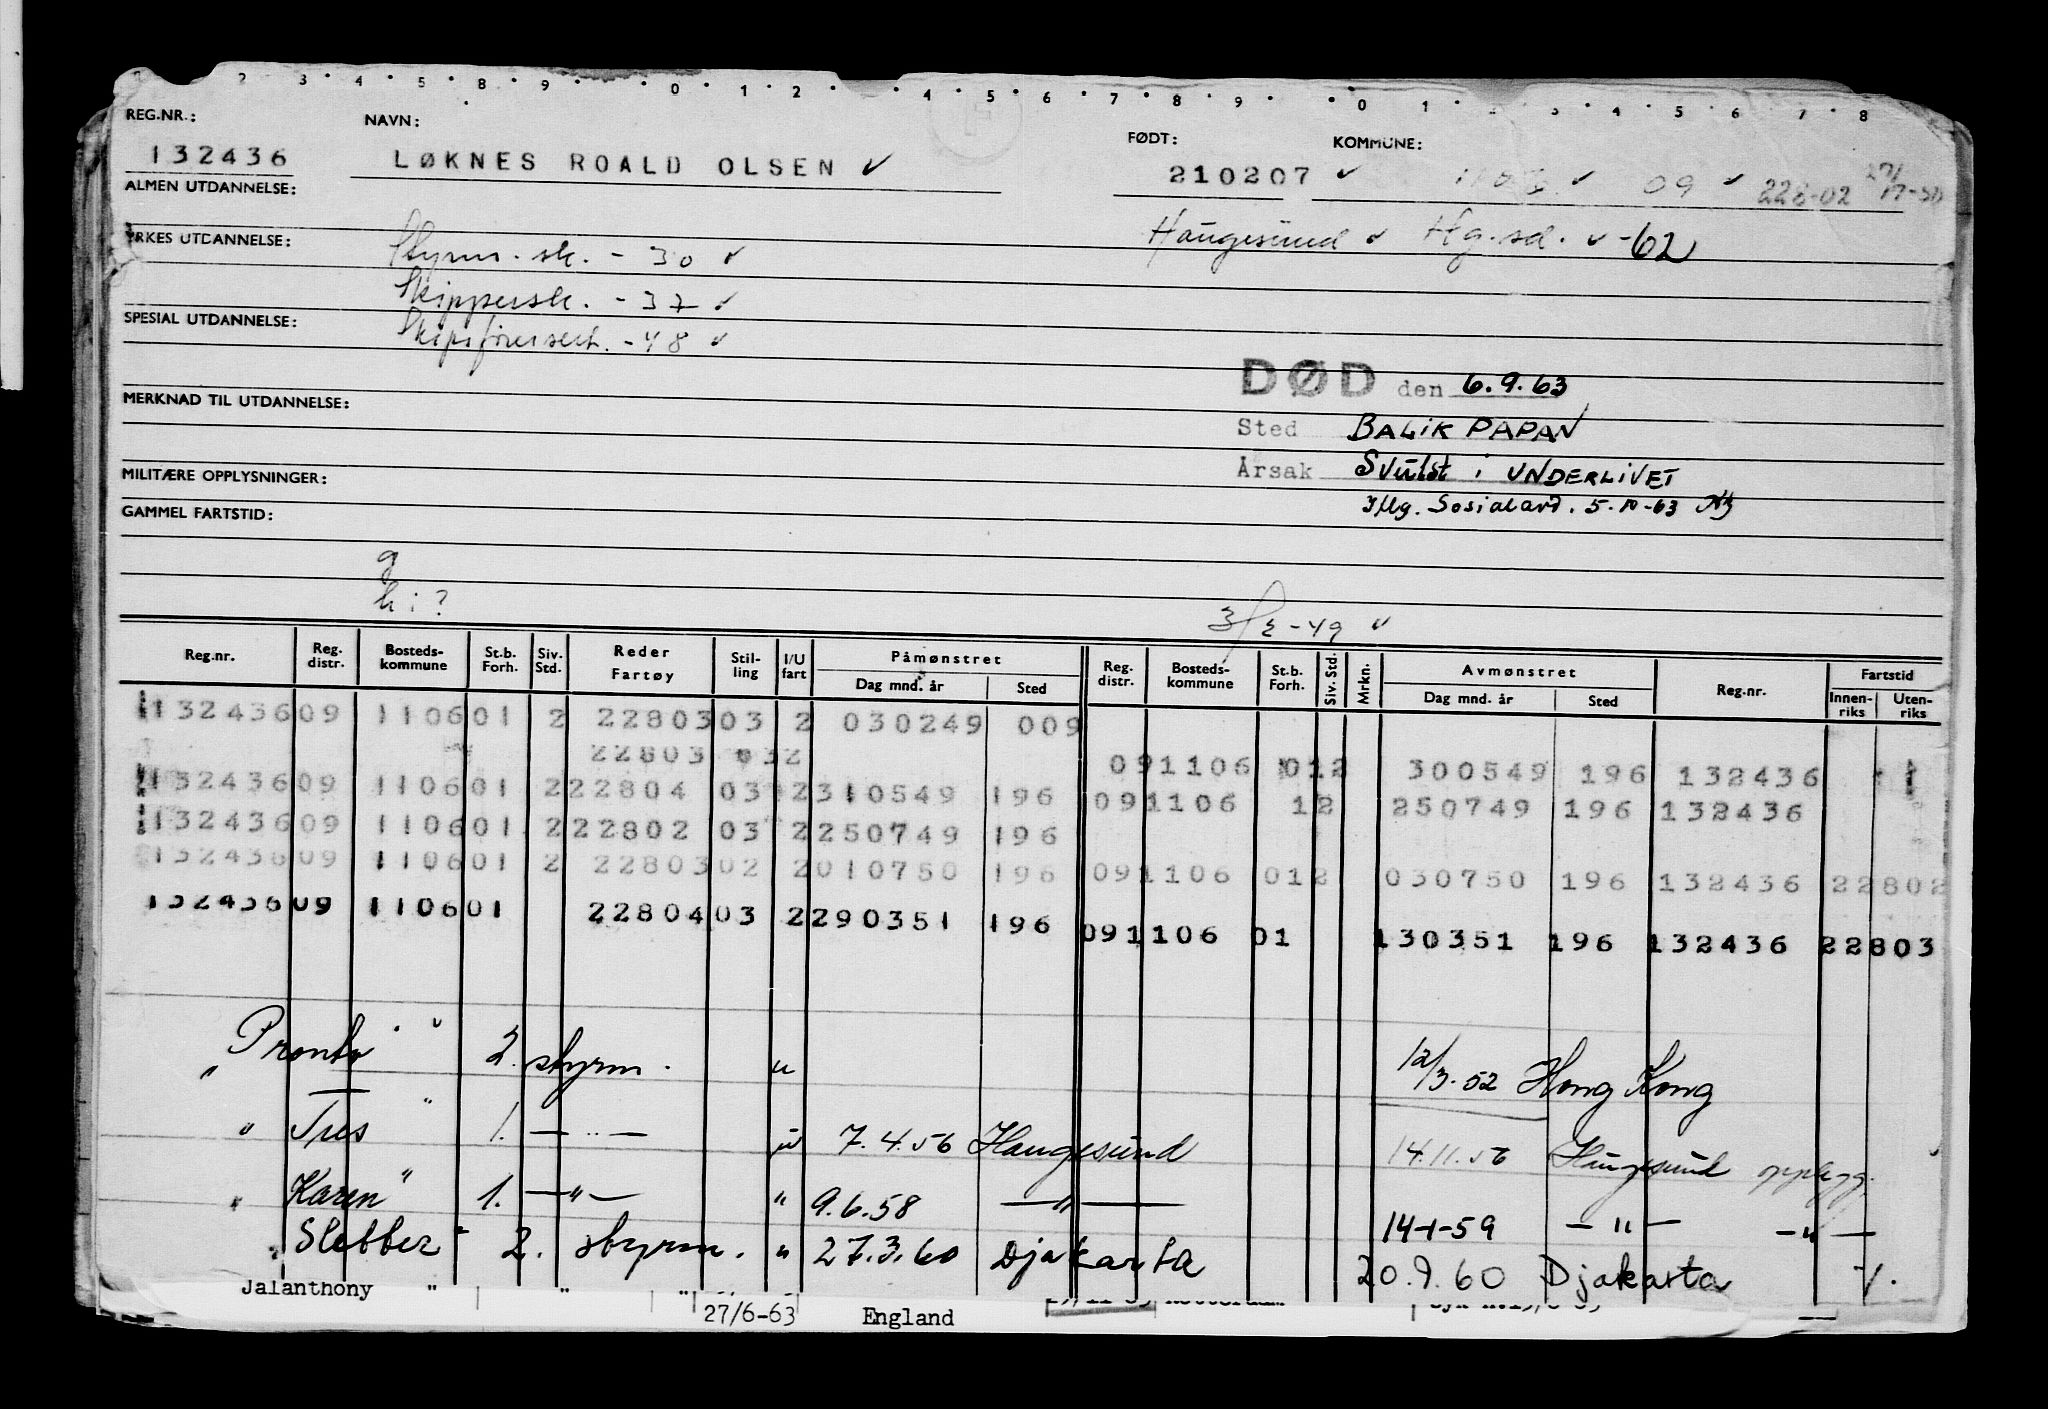 2 3 4 5 8 9 0 1 2 4 5 6 7 8 9 0 1 2 3 4 5 6 7 8
REG.NR.: NAVN: FØDT: KOMMUNE:
132436 LØKNES ROALD OLSEN ✓ 210207 ✓ 09 ✓ 228-02
ALMEN UTDANNELSE:
Haugesund ✓ Hg.sd. ✓ -62
YRKES UTDANNELSE: Styrm. sk. - 30 ✓
Skippersk. - 37 ✓
SPESIAL UTDANNELSE: Skipsførersert. - 48 ✓
DØD den 6.9.63
MERKNAD TIL UTDANNELSE:
Sted BALIK PAPAN
Årsak Svulst i UNDERLIVET
MILITÆRE OPPLYSNINGER:
Iflg. Sosialavd. 5-10-63
GAMMEL FARTSTID:
g
h i ?
3/2-49 ✓
Reg.nr. Reg. distr. Bosteds-kommune St.b. Forh. Siv. Std. Reder Fartøy Stil-ling I/U fart Påmønstret Dag mnd. år Sted Reg. distr. Bosteds-kommune St.b. Forh. Siv. Std. Mrkn. Avmønstret Dag mnd. år Sted Reg.nr. Fartstid Innen-riks Uten-riks
132436 09 1106 01 2 22803 03 2 030249 009
22803 032 09 1106 012 300549 196 132436
132436 09 1106 01 2 22804 03 2 310549 196 09 1106 12 250749 196 132436
132436 09 1106 01 2 22802 03 2 250749 196
132436 09 1106 01 2 22803 02 2 010750 196 09 1106 012 030750 196 132436 22802
132436 09 1106 01 22804 03 2 290351 196 09 1106 01 130351 196 132436 22803
"Pronto" 2. styrm. u 12/3.52 Hong Kong
" Tres " 1. — " — u 7.4.56 Haugesund 14.11.56 Haugesund opplegg.
" Karen " 1. — " — " 9.6.58 — " — 14-1-59 — " — — " —
" Slebber " 2. styrm. " 27.3.60 Djakarta 20.9.60 Djakarta
Jalanthony " " "
27/6-63 England